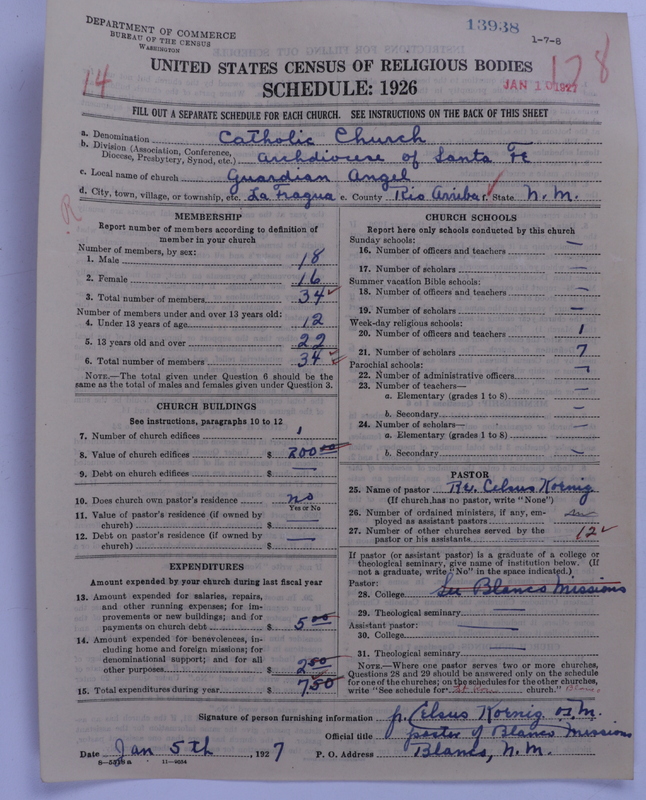 DEPARTMENT OF COMMERCE
BUREAU OF THE CENSUS
WASHINGTON
13938
1-7-8
UNITED STATES CENSUS OF RELIGIOUS BODIES
14
SCHEDULE: 1926
JAN 10 1927
128
FILL OUT A SEPARATE SCHEDULE FOR EACH CHURCH. SEE INSTRUCTIONS ON THE BACK OF THIS SHEET
a. Denomination Catholic Church
b. Division (Association, Conference, Diocese, Presbytery, Synod, etc.) Archdiocese of Santa Fe
c. Local name of church Guardian Angel
d. City, town, village, or township, etc. La Fragua e. County Rio Arriba f. State N. M.
R
MEMBERSHIP
Report number of members according to definition of
member in your church
Number of members, by sex:
1. Male 18
2. Female 16
3. Total number of members 34
Number of members under and over 13 years old:
4. Under 13 years of age 12
5. 13 years old and over 22
6. Total number of members 34
NOTE.—The total given under Question 6 should be the
same as the total of males and females given under Question 3.
CHURCH BUILDINGS
See instructions, paragraphs 10 to 12
7. Number of church edifices 1
8. Value of church edifices $ 200 00
9. Debt on church edifices $ —
10. Does church own pastor's residence no
Yes or No
11. Value of pastor's residence (if owned by
church) $ —
12. Debt on pastor's residence (if owned by
church) $ —
EXPENDITURES
Amount expended by your church during last fiscal year
13. Amount expended for salaries, repairs,
and other running expenses; for im-
provements or new buildings; and for
payments on church debt $ 5 00
14. Amount expended for benevolences, in-
cluding home and foreign missions; for
denominational support; and for all
other purposes $ 2 50
15. Total expenditures during year $ 7 50
CHURCH SCHOOLS
Report here only schools conducted by this church
Sunday schools:
16. Number of officers and teachers —
17. Number of scholars —
Summer vacation Bible schools:
18. Number of officers and teachers —
19. Number of scholars —
Week-day religious schools:
20. Number of officers and teachers 1
21. Number of scholars 7
Parochial schools:
22. Number of administrative officers —
23. Number of teachers—
a. Elementary (grades 1 to 8) —
b. Secondary —
24. Number of scholars—
a. Elementary (grades 1 to 8) —
b. Secondary —
PASTOR
25. Name of pastor Rev. Celsus Koenig
(If church has no pastor, write "None")
26. Number of ordained ministers, if any, em-
ployed as assistant pastors
27. Number of other churches served by the
pastor or his assistants 12
If pastor (or assistant pastor) is a graduate of a college or
theological seminary, give name of institution below. (If
not a graduate, write "No" in the space indicated.)
Pastor:
28. College See Blanco Missions
29. Theological seminary —
Assistant pastor:
30. College —
31. Theological seminary —
NOTE.—Where one pastor serves two or more churches,
Questions 28 and 29 should be answered only on the schedule
for one of the churches; on the schedules for the other churches,
write "See schedule for church."
Signature of person furnishing information fr. Celsus Koenig O.F.M.
Official title pastor of Blanco Missions
Date Jan 5th, 1927 P. O. Address Blanco, N. M.
11—9034